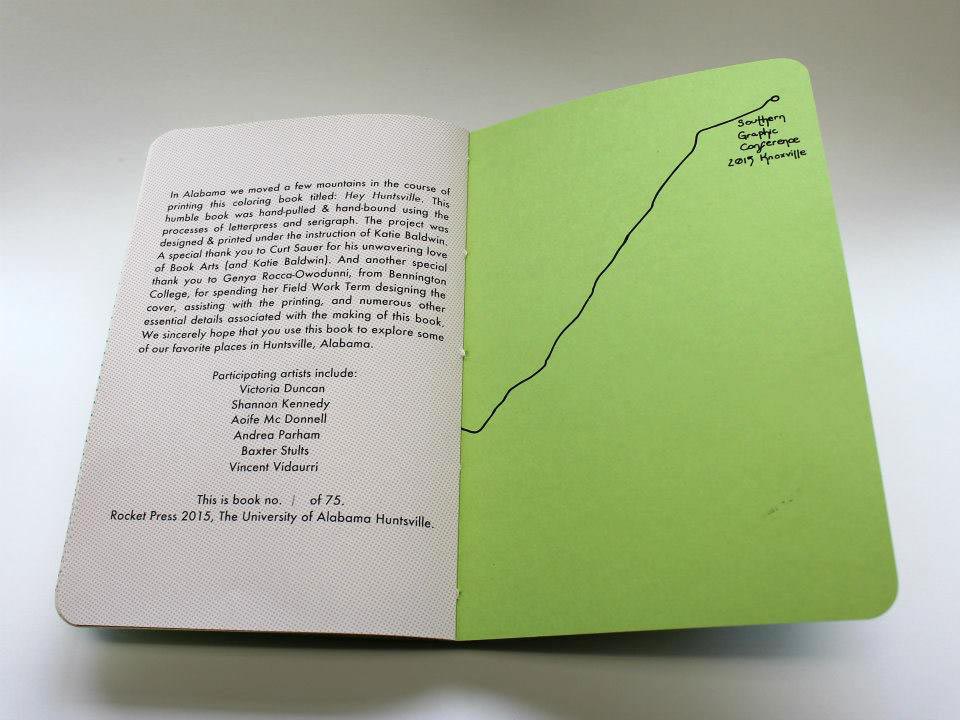 In Alabama we moved a few mountains in the course of
printing this coloring book titled: Hey Huntsville. This
humble book was hand-pulled & hand-bound using the
processes of letterpress and serigraph. The project was
designed & printed under the instruction of Katie Baldwin.
A special thank you to Curt Sauer for his unwavering love
of Book Arts (and Katie Baldwin). And another special
thank you to Genya Rocca-Owodunni, from Bennington
College, for spending her Field Work Term designing the
cover, assisting with the printing, and numerous other
essential details associated with the making of this book.
We sincerely hope that you use this book to explore some
of our favorite places in Huntsville, Alabama.
Participating artists include:
Victoria Duncan
Shannon Kennedy
Aoife Mc Donnell
Andrea Parham
Baxter Stults
Vincent Vidaurri
This is book no. 1 of 75.
Rocket Press 2015, The University of Alabama Huntsville.
Southern
Graphic
Conference
2015 Knoxville